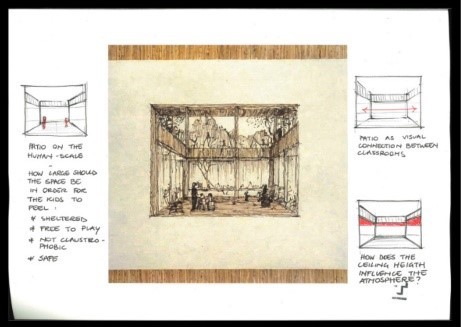 PATIO ON THE
HUMAN-SCALE
-
HOW LARGE SHOULD
THE SPACE BE
IN ORDER FOR
THE KIDS TO
FEEL:
* SHELTERED
* FREE TO PLAY
* NOT CLAUSTRO-
PHOBIC
* SAFE
PATIO AS VISUAL
CONNECTION BETWEEN
CLASSROOMS
HOW DOES THE
CEILING HEIGTH
INFLUENCE THE
ATMOSPHERE?